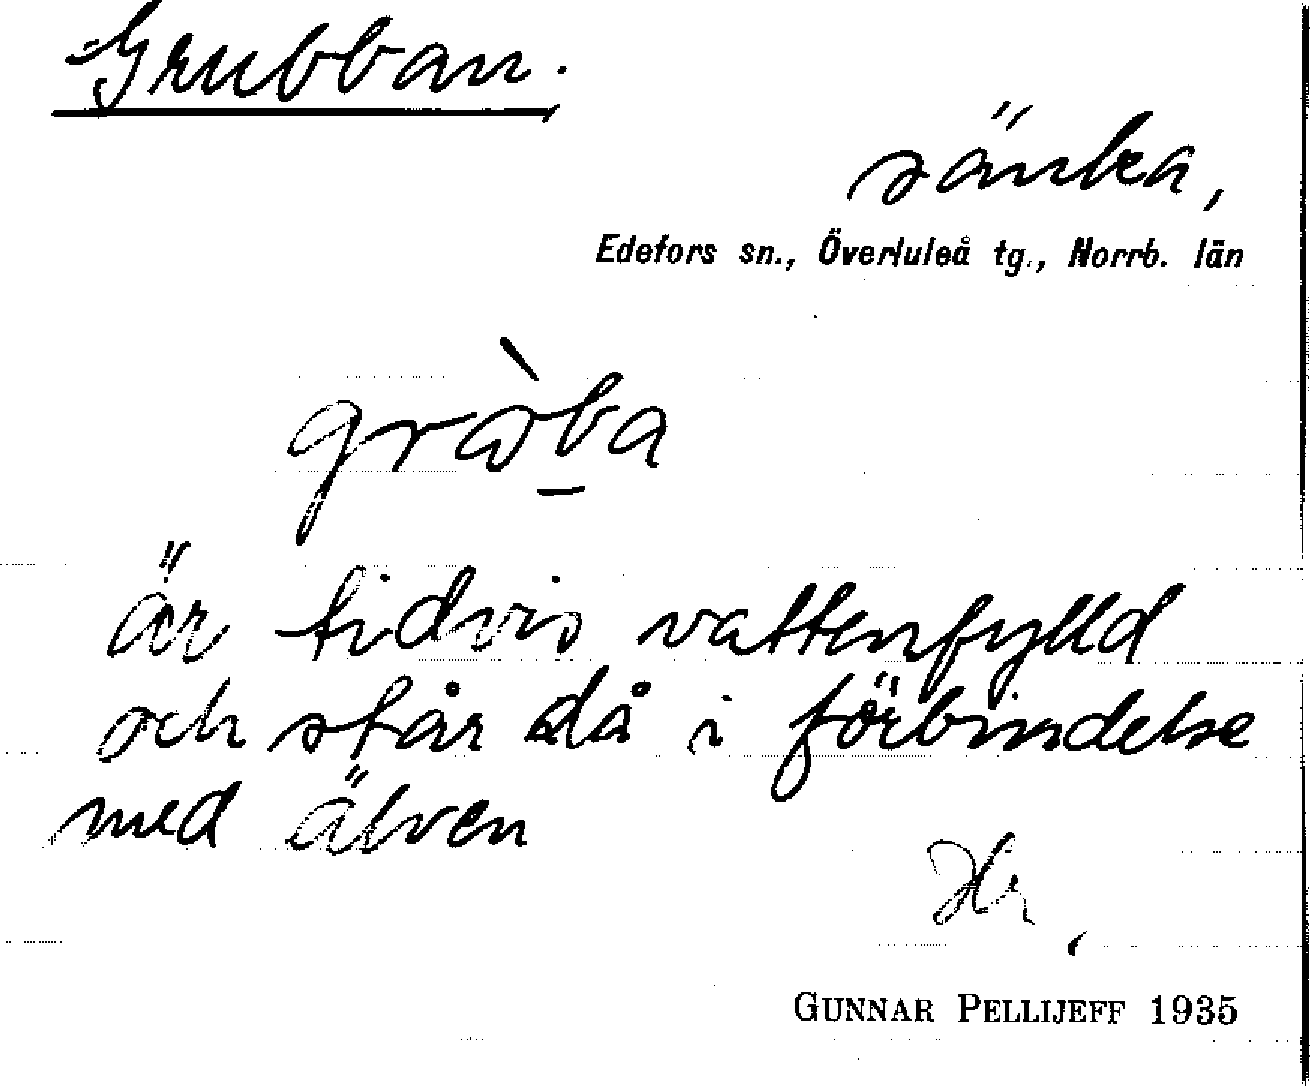 Grubban.
sänka,
Edefors sn., Överluleå tg., Norrb. län
gràba
är tidvis vattenfylld
och står då i förbindelse
med älven
Hr,
GUNNAR PELLIJEFF 1935